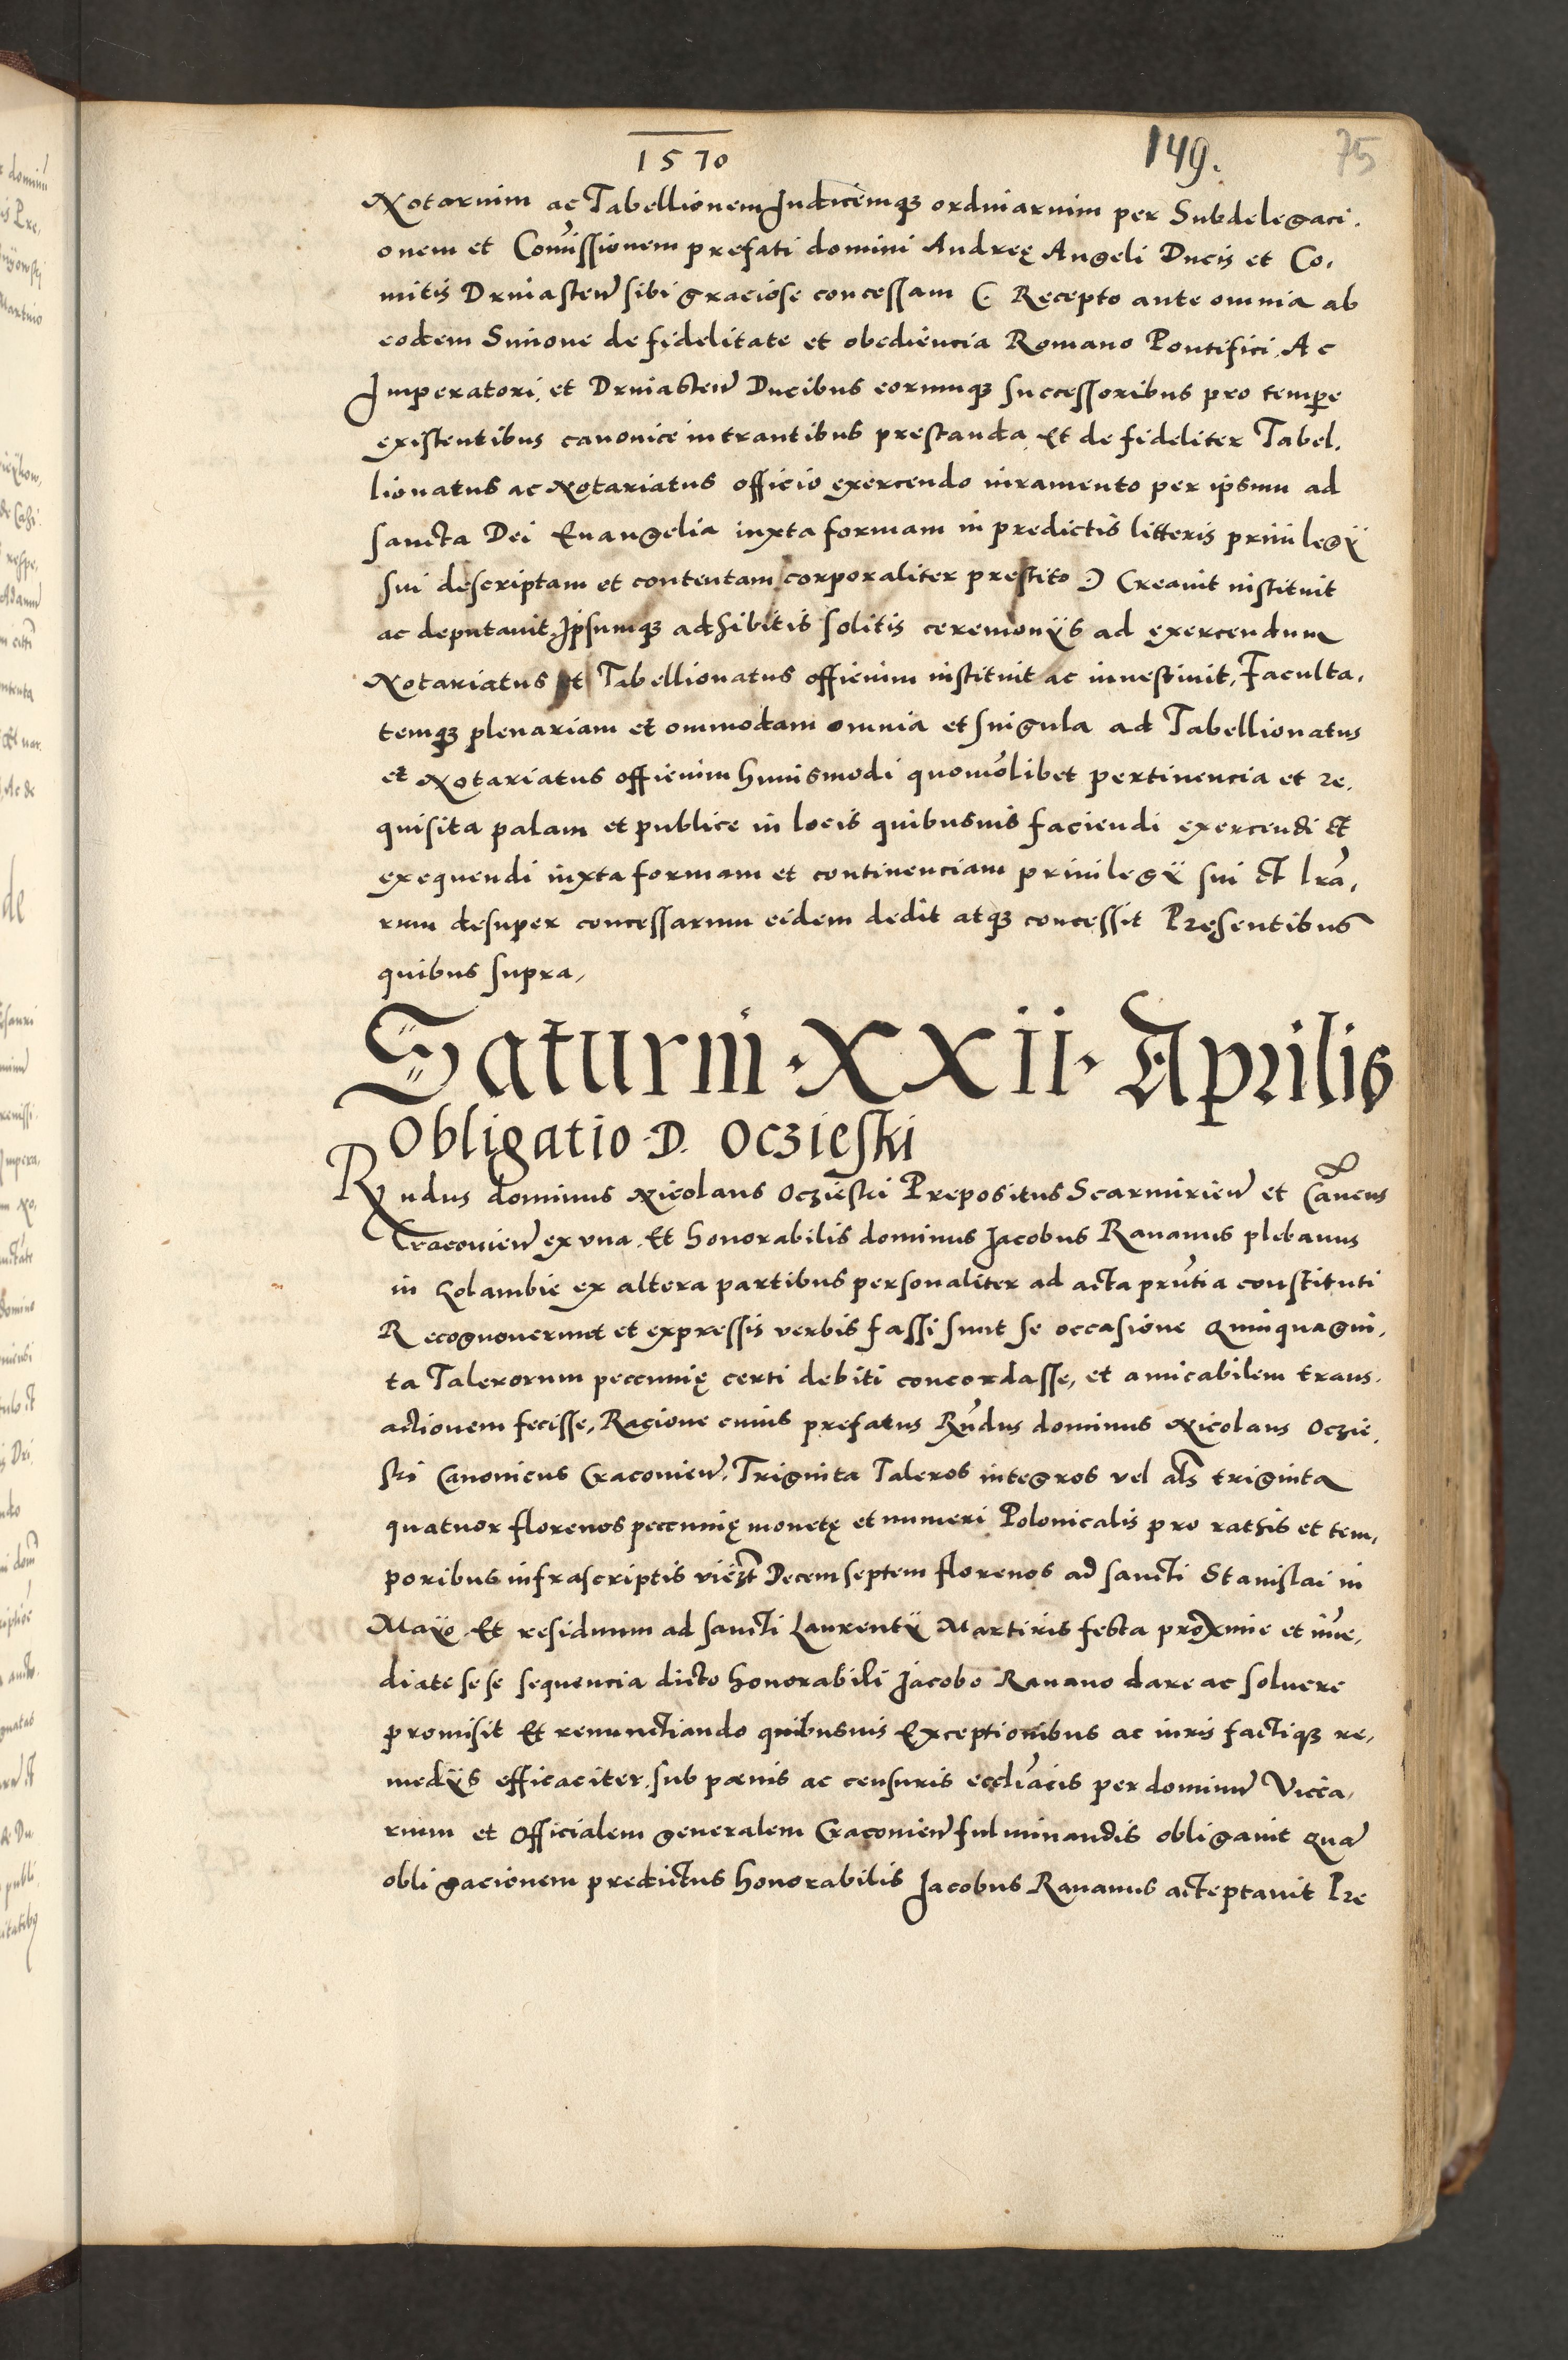 1570
149.
75
Notarium ac Tabellionem Iudicemqꝫ ordinarium per Subdelegaci.
onem et Com̃issionem prefati domini Andreę Angeli Ducis et Co,
mitis Driuasteñ sibi graciose concessam (. Recepto ante omnia ab
eodem Simone de fidelitate et obediencia Romano Pontifici, Ac
Imperatori, et Driuasteñ Ducibus eorumqꝫ successoribus pro temꝑe
existentibus canonice intrantibus prestanda, Et de fideliter Tabel,
lionatus ac Notariatus officio exercendo iuramento per ipsum ad
sancta Dei Euangelia iuxta formam in predictis litteris priuilegÿ
sui descriptam et contentam corporaliter prestito .) Creauit instituit
ac deputauit. Ipsumqꝫ adhibitis solitis ceremonÿs ad exercendum
Notariatus et Tabellionatus officium instituit ac inuestiuit, Faculta,
temqꝫ plenariam et omnimodam omnia et singula ad Tabellionatus
et Notariatus officium huiusmodi quomõlibet pertinencia et re,
quisita palam et publice in locis quibusuis faciendi exercendi et
exequendi iuxta formam et continenciam priuilegÿ sui et lrã,
rum desuper concessarum eidem dedit atqꝫ concessit Presentibus
quibus supra,
Saturni · XXII · Aprilis
Obligatio D. Oczieski
Rndus dominus Nicolaus Oczieski Prepositus Scarmirieñ et Cãncus
Cracouieñ ex vna, Et honorabilis dominus Jacobus Rauanus plebanus
in Golambie ex altera partibus personaliter ad acta prñtia constituti
Recognouerunt et expressis verbis fassi sunt se occasione Quinquagin,
ta Talerorum peccunię certi debiti concordasse, et amicabilem trans,
actionem fecisse, Racione cuius prefatus Rñdus dominus Nicolaus Oczie,
ski Canonicus Cracouieñ, Triginta Taleros integros vel als̃ triginta
quatuor florenos peccunię monetę et numeri Polonicalis pro rathis et tem,
poribus infrascriptis vidꝫt Decem septem florenos ad sancti Stanislai in
Mayo, Et residuum ad sancti Laurentÿ Martiris festa proxime et im̃e,
diate sese sequencia dicto honorabili Jacobo Rauano dare ac soluere
promisit Et renunctiando quibusuis Exceptionibus ac iuris factiqꝫ re,
medÿs efficaciter, sub pœnis ac censuris ecclĩacis per dominũ Vicca,
rium et Officialem generalem Cracouieñ fulminandis obligauit Quã
obligacionem predictus honorabilis Jacobus Rauanus acteptauit Pre